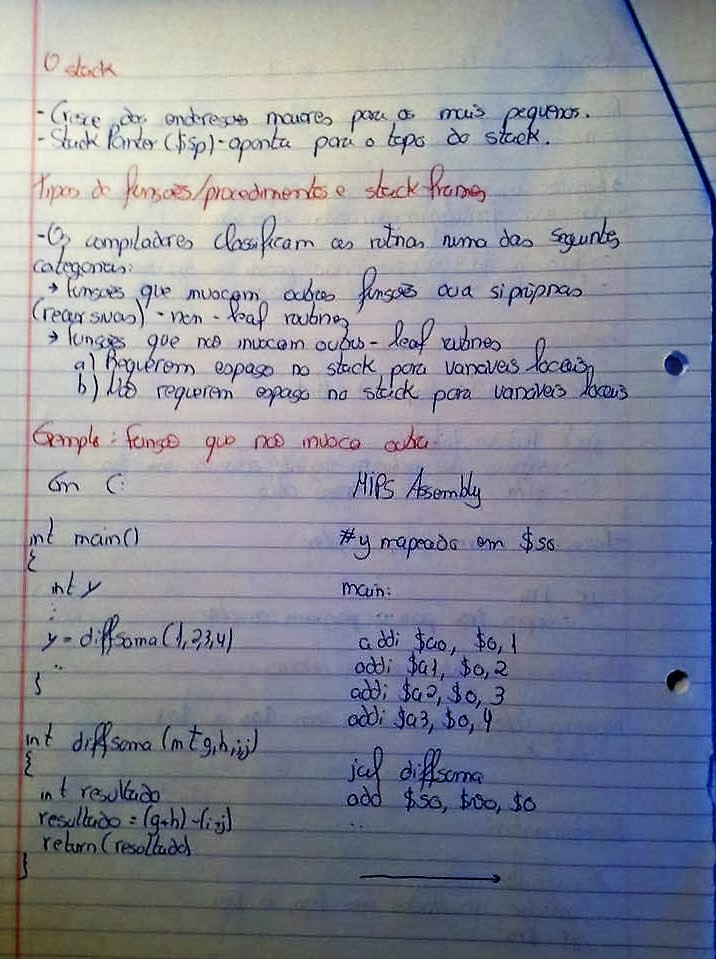 O stack
- Cresce dos endereços maiores para os mais pequenos.
- Stack Pointer ($sp) - aponta para o topo do stack.
Tipos de funções/procedimentos e stack frames
- Os compiladores classificam as rotinas numa das seguintes
categorias:
→ funções que invocam outras funções ou a si próprias
(recursivas) - non-leaf routines
→ funções que não invocam outras - leaf routines
a) Requerem espaço no stack para variáveis locais
b) Não requerem espaço no stack para variáveis locais
Exemplo: função que não invoca outra
Em C:
int main()
{
int y
:
y = diffsoma(1,2,3,4)
..
}
int diffsoma (int g,h,i,j)
{
int resultado
resultado = (g+h) - (i+j)
return(resultado)
}
MIPS Assembly
#y mapeado em $s0
main:
addi $a0, $0, 1
addi $a1, $0, 2
addi $a2, $0, 3
addi $a3, $0, 4
jal diffsoma
add $s0, $v0, $0
..